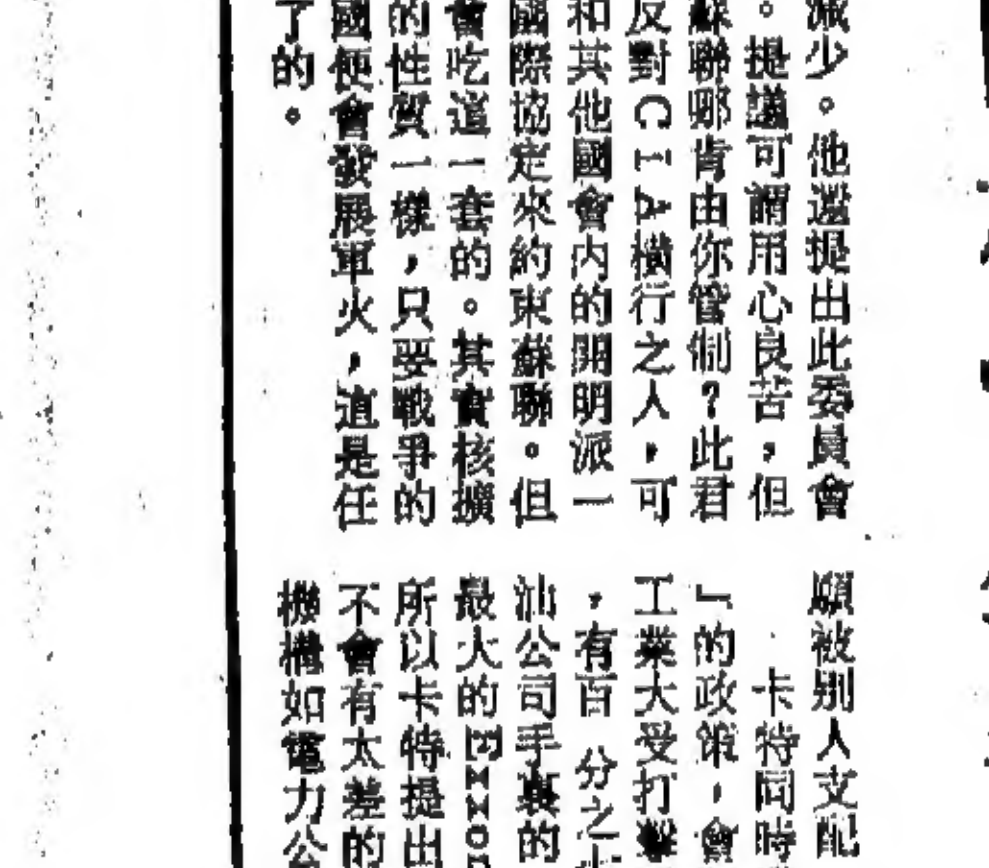 減少。他還提出此委員會
。提議可謂用心良苦，但
蘇聯哪肯由你管制？此君
反對CIA橫行之人，可
和其他國會內的開明派一
國際協定來約束蘇聯。但
會吃這一套的。其實核擴
的性質一樣，只要戰爭的
國便會發展軍火，這是任
了的。
願被別人支配
卡特同時
』的政策，會
工業大受打擊
，有百 分之
油公司手裏的
最大的EXXO
所以卡特提出
不會有太差的
機構如電力公